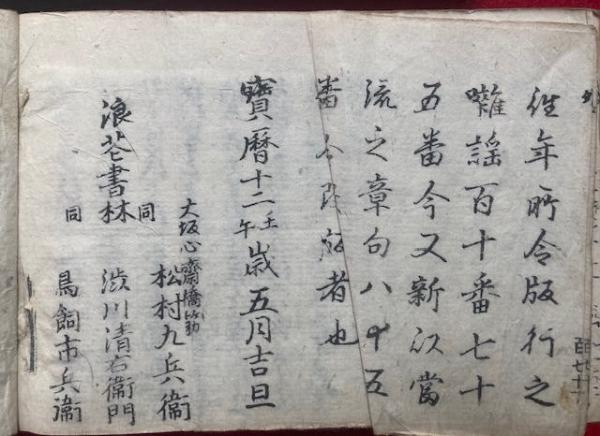 往年所令版行之
囃謡百十番七十
五番今又新以當
流之章句八十五
番令改版者也
寶暦十二壬午歳五月吉旦
大坂心齋橋筋
同 松村九兵衞
浪芲書林 渋川清右衞門
同 鳥飼市兵衞